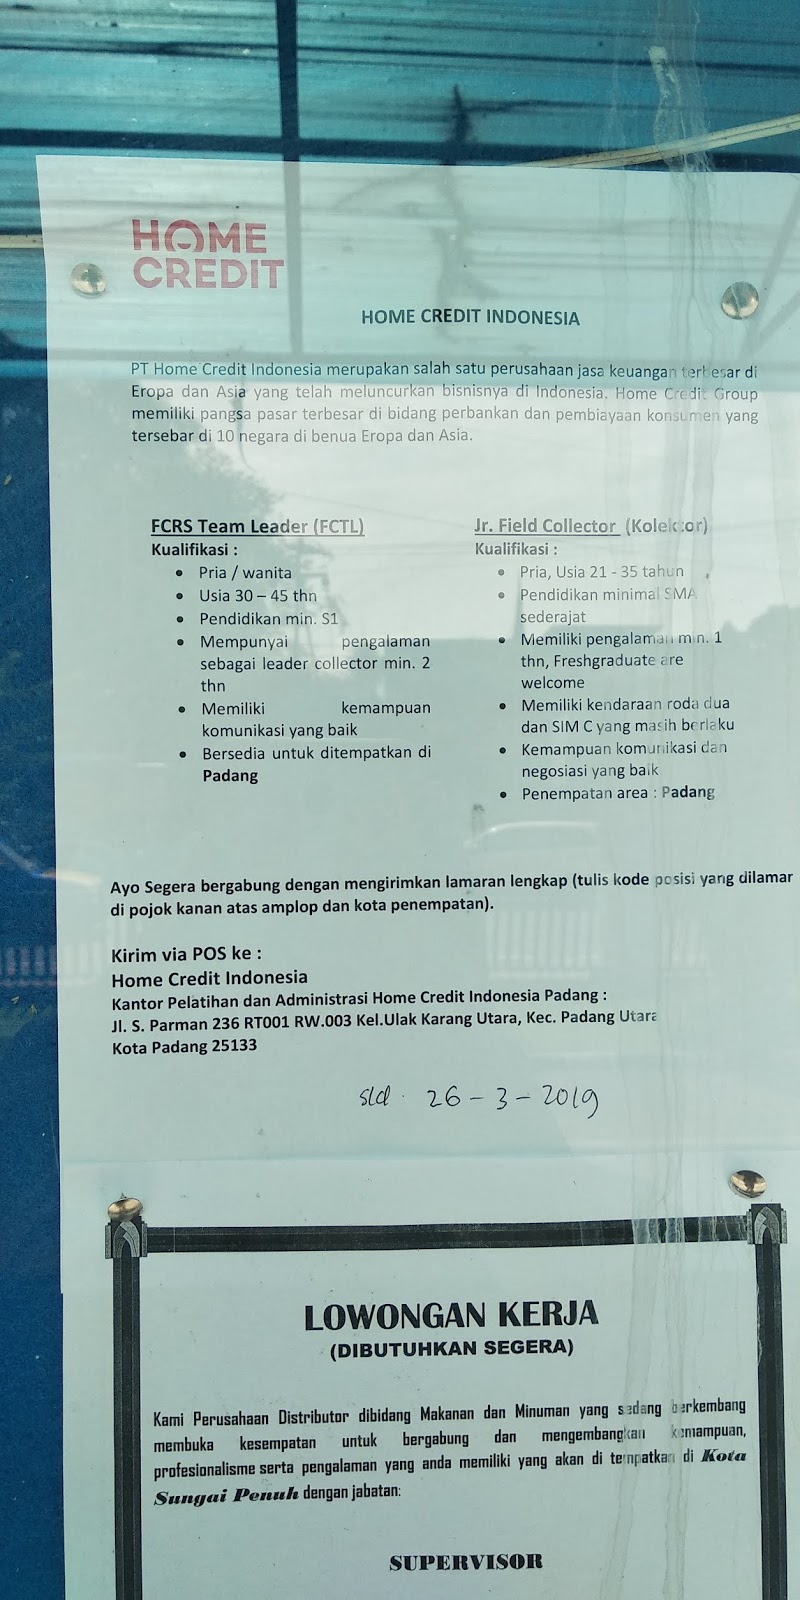 HOME
CREDIT
HOME CREDIT INDONESIA
PT Home Credit Indonesia merupakan salah satu perusahaan jasa keuangan terbesar di
Eropa dan Asia yang telah meluncurkan bisnisnya di Indonesia. Home Credit Group
memiliki pangsa pasar terbesar di bidang perbankan dan pembiayaan konsumen yang
tersebar di 10 negara di benua Eropa dan Asia.
FCRS Team Leader (FCTL)
Kualifikasi :
• Pria / wanita
• Usia 30 – 45 thn
• Pendidikan min. S1
• Mempunyai pengalaman
sebagai leader collector min. 2
thn
• Memiliki kemampuan
komunikasi yang baik
• Bersedia untuk ditempatkan di
Padang
Jr. Field Collector (Kolektor)
Kualifikasi :
• Pria, Usia 21 - 35 tahun
• Pendidikan minimal SMA
sederajat
• Memiliki pengalaman min. 1
thn, Freshgraduate are
welcome
• Memiliki kendaraan roda dua
dan SIM C yang masih berlaku
• Kemampuan komunikasi dan
negosiasi yang baik
• Penempatan area : Padang
Ayo Segera bergabung dengan mengirimkan lamaran lengkap (tulis kode posisi yang dilamar
di pojok kanan atas amplop dan kota penempatan).
Kirim via POS ke :
Home Credit Indonesia
Kantor Pelatihan dan Administrasi Home Credit Indonesia Padang :
Jl. S. Parman 236 RT001 RW.003 Kel.Ulak Karang Utara, Kec. Padang Utara
Kota Padang 25133
s/d . 26 - 3 - 2019
LOWONGAN KERJA
(DIBUTUHKAN SEGERA)
Kami Perusahaan Distributor dibidang Makanan dan Minuman yang sedang berkembang
membuka kesempatan untuk bergabung dan mengembangkan kemampuan,
profesionalisme serta pengalaman yang anda memiliki yang akan di tempatkan di Kota
Sungai Penuh dengan jabatan:
SUPERVISOR